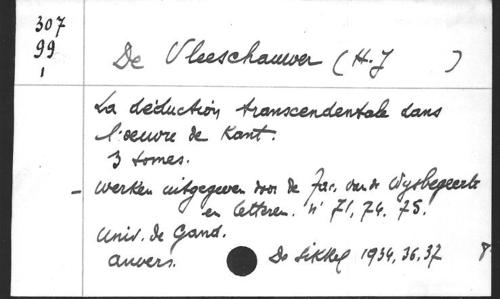 307
99
1
De Vleeschauwer (H.J )
La déduction transcendentale dans
l'oeuvre de Kant.
3 tomes.
- Werken uitgegeven door de Fac. van de Wysbegeerte
en letteren. n° 71, 74, 75.
Univ. de Gand.
Anvers. De Sikkel 1934, 36, 37